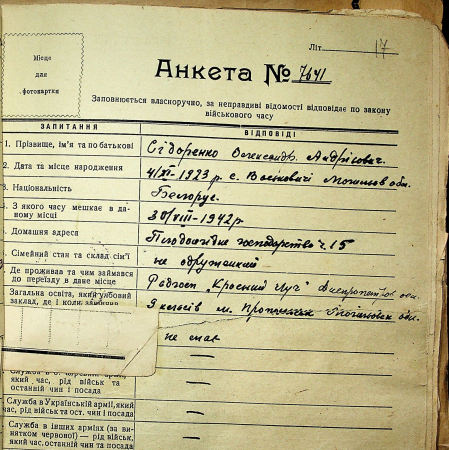 Літ. 17
Місце
для
фотокартки
Анкета № 7641
Заповнюється власноручно, за неправдиві відомості відповідає по закону
військового часу
ЗАПИТАННЯ ВІДПОВІДІ
1. Прізвище, ім'я та по батькові Сідоренко Олександр Андрієович.
2. Дата та місце народження 4/XI-1923 р с. Могильов обл.
3. Національність Белорус.
З якого часу мешкає в да-
ному місці 30/VIII-1942 р
Домашня адреса господарство ч. 15
Сімейний стан та склад сім'ї не одружений
Де проживав та чим займався
до переїзду в дане місце Радгосп „Красний луч" Дніпропетров обл.
Загальна освіта, який учбовий
заклад, де і коли 9 класів м. обл.
не має
який час, рід військ та
останній чин і посада —
Служба в Українській армії, який
час, рід військ та ост. чин і посада —
Служба в інших арміях (за ви-
нятком червоної) — рід військ,
який час, останній чин та посада —